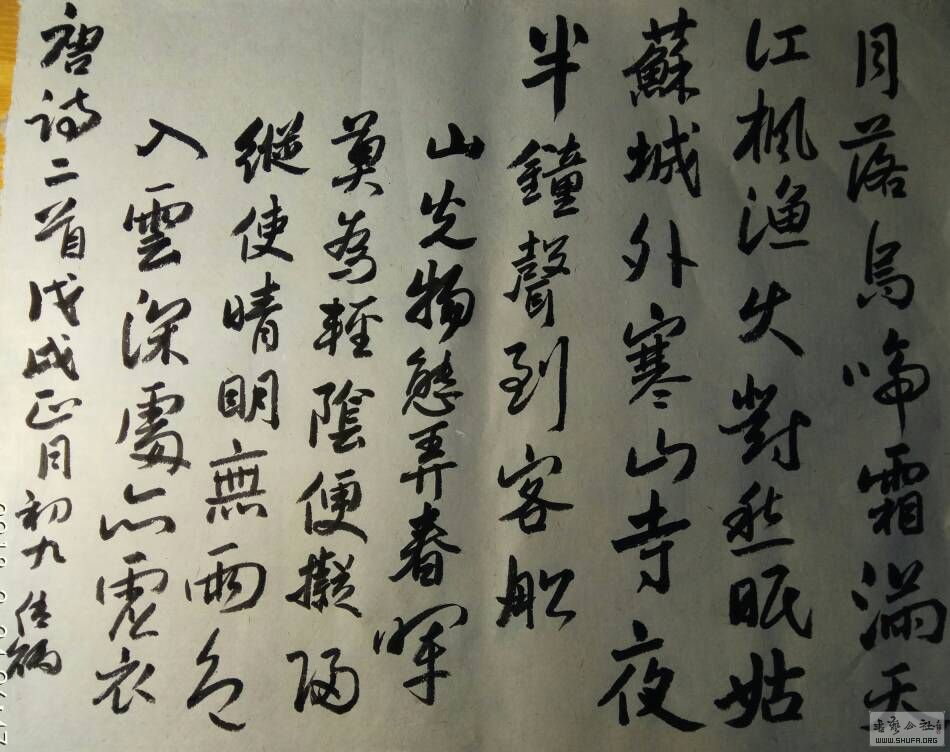 月落烏啼霜滿天
江楓漁火對愁眠姑
蘇城外寒山寺夜
半鐘聲到客船
山光物態弄春暉
莫為輕陰便擬歸
縱使晴明無雨色
入雲深處亦霑衣
唐詩二首戊戌正月初九
書藝公社
WWW.SHUFA.ORG